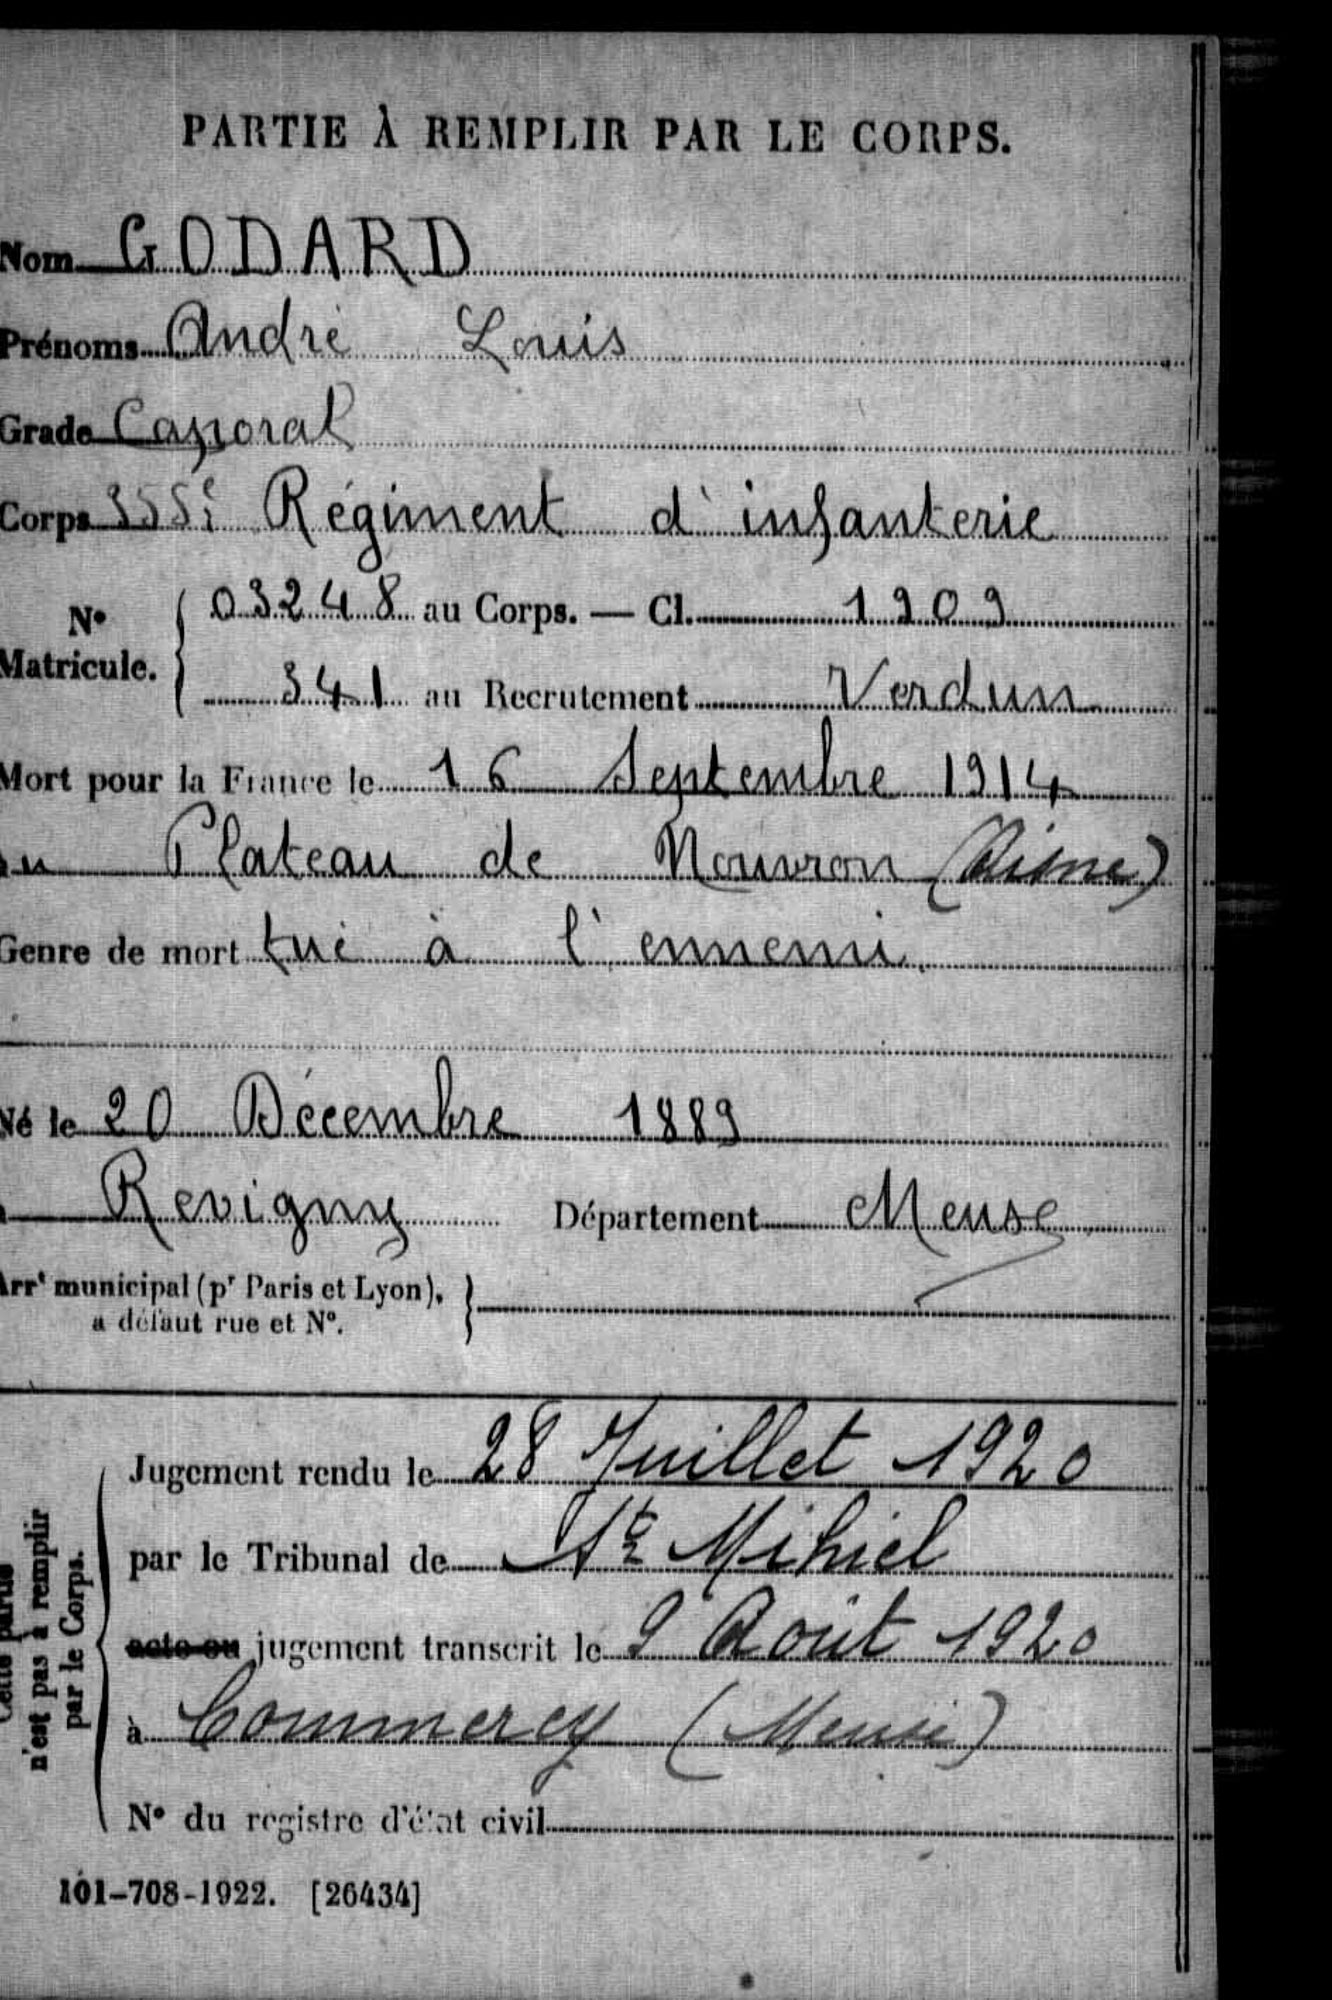 PARTIE À REMPLIR PAR LE CORPS.
Nom GODARD
Prénoms André Louis
Grade Caporal
Corps 355e Régiment d'infanterie
N° Matricule. 03248 au Corps. — Cl. 1909
341 au Recrutement Verdun
Mort pour la France le 16 Septembre 1914
Plateau de Nouvron (Aisne)
Genre de mort tué à l'ennemi
Né le 20 Décembre 1889
Revigny Département Meuse
Arrt municipal (pr Paris et Lyon),
à défaut rue et N°.
Jugement rendu le 28 Juillet 1920
par le Tribunal de St Mihiel
acte ou jugement transcrit le 9 Août 1920
à Commercy (Meuse)
N° du registre d'état civil
Cette partie
n'est pas à remplir
par le Corps.
101-708-1922. [26434]